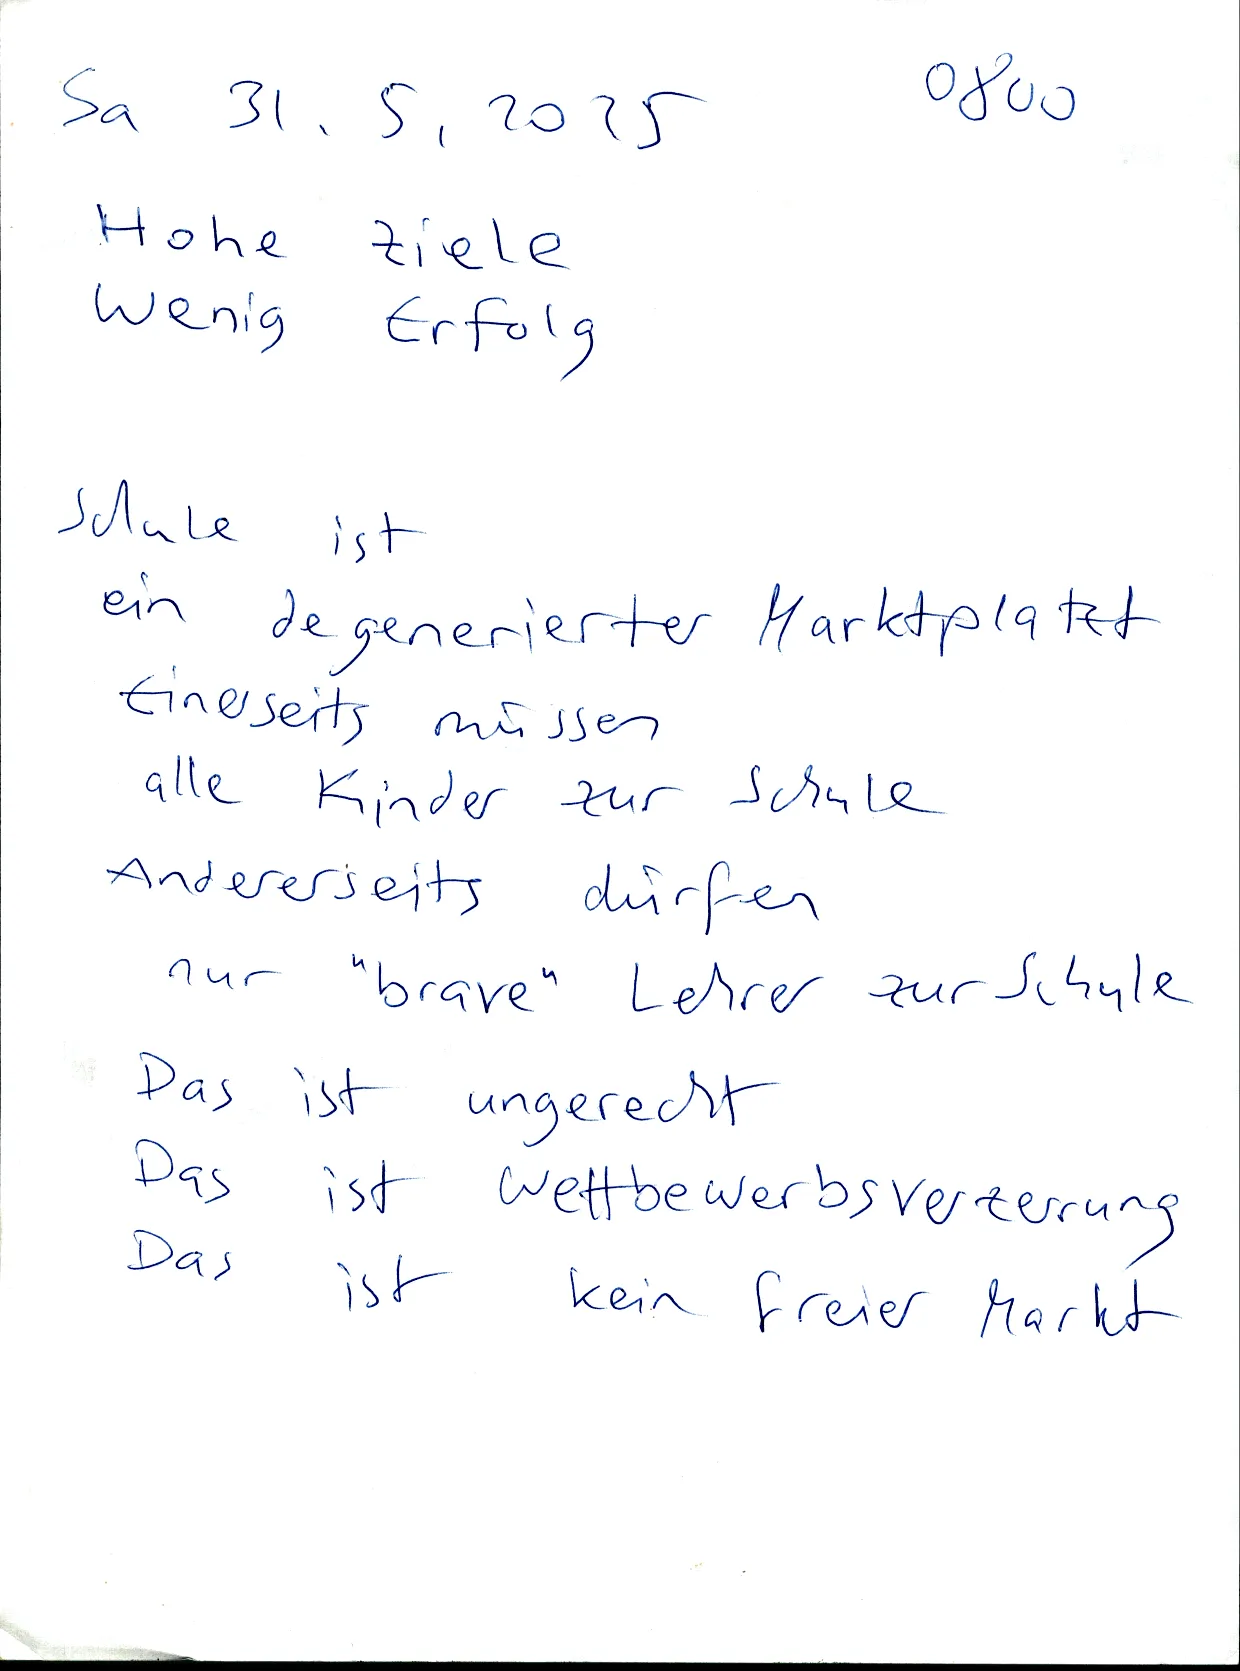 Sa 31. 5. 2025 0800
Hohe Ziele
Wenig Erfolg
Schule ist
ein degenerierter Marktplatzt
Einerseits müssen
alle Kinder zur Schule
Andererseits dürfen
nur "brave" Lehrer zur Schule
Das ist ungerecht
Das ist Wettbewerbsverzerrung
Das ist kein freier Markt